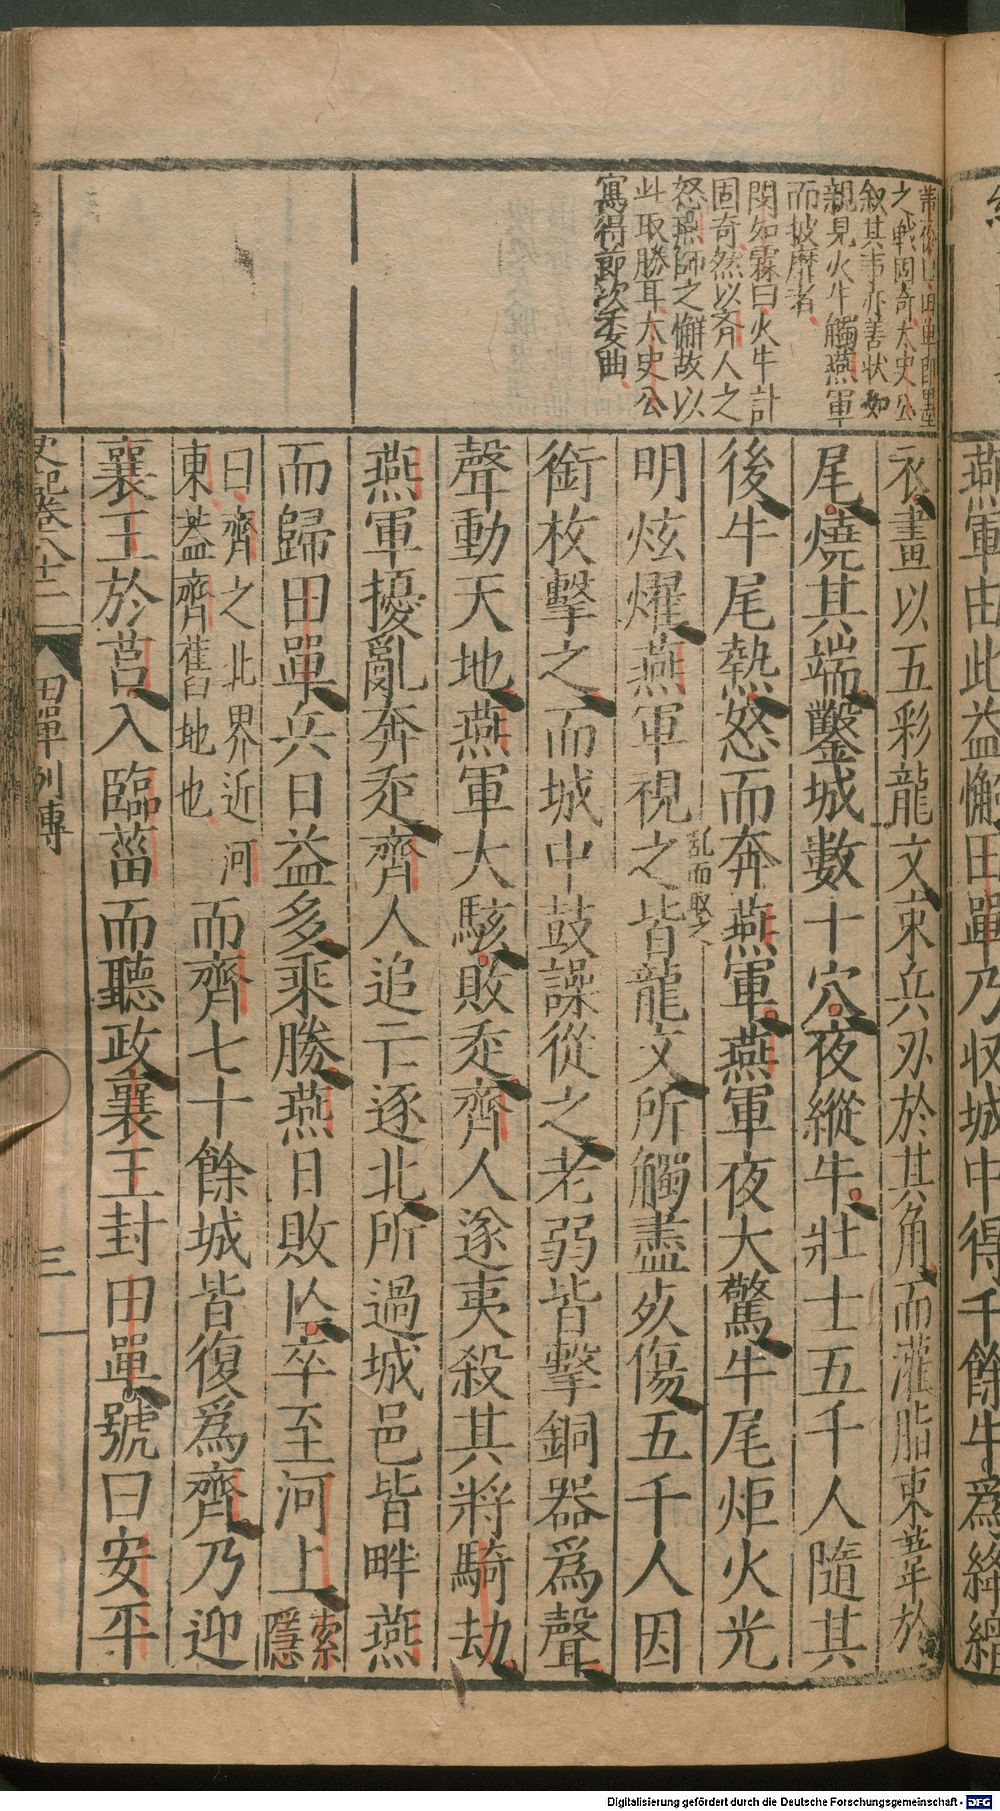 燕軍由此益懈田單乃収城中得千餘牛爲絳繒
之戰固奇太史公
叙其事亦善状如
親見火牛觸燕軍
而披靡者
閔如霖曰火牛計
固奇然以齊人之
怒燕師之懈故以
此取勝耳太史公
寫得節次委曲
衣畫以五彩龍文束兵刃於其角而灌脂束葦於
尾燒其端鑿城數十穴夜縱牛壯士五千人隨其
後牛尾熱怒而奔燕軍燕軍夜大驚牛尾炬火光
乱而取之
明炫燿燕軍視之皆龍文所觸盡死傷五千人因
銜枚擊之而城中鼓譟從之老弱皆擊銅器爲聲
聲動天地燕軍大駭敗走齊人遂夷殺其將騎劫
燕軍擾亂奔走齊人追亡逐北所過城邑皆畔燕
而歸田單兵日益多乘勝燕日敗亾卒至河上索隱
曰齊之北界近河
東蓋齊舊地也
而齊七十餘城皆復爲齊乃迎
襄王於莒入臨菑而聽政襄王封田單號曰安平
史記卷八十二 田單列傳 三
Digitalisierung gefördert durch die Deutsche Forschungsgemeinschaft - DFG